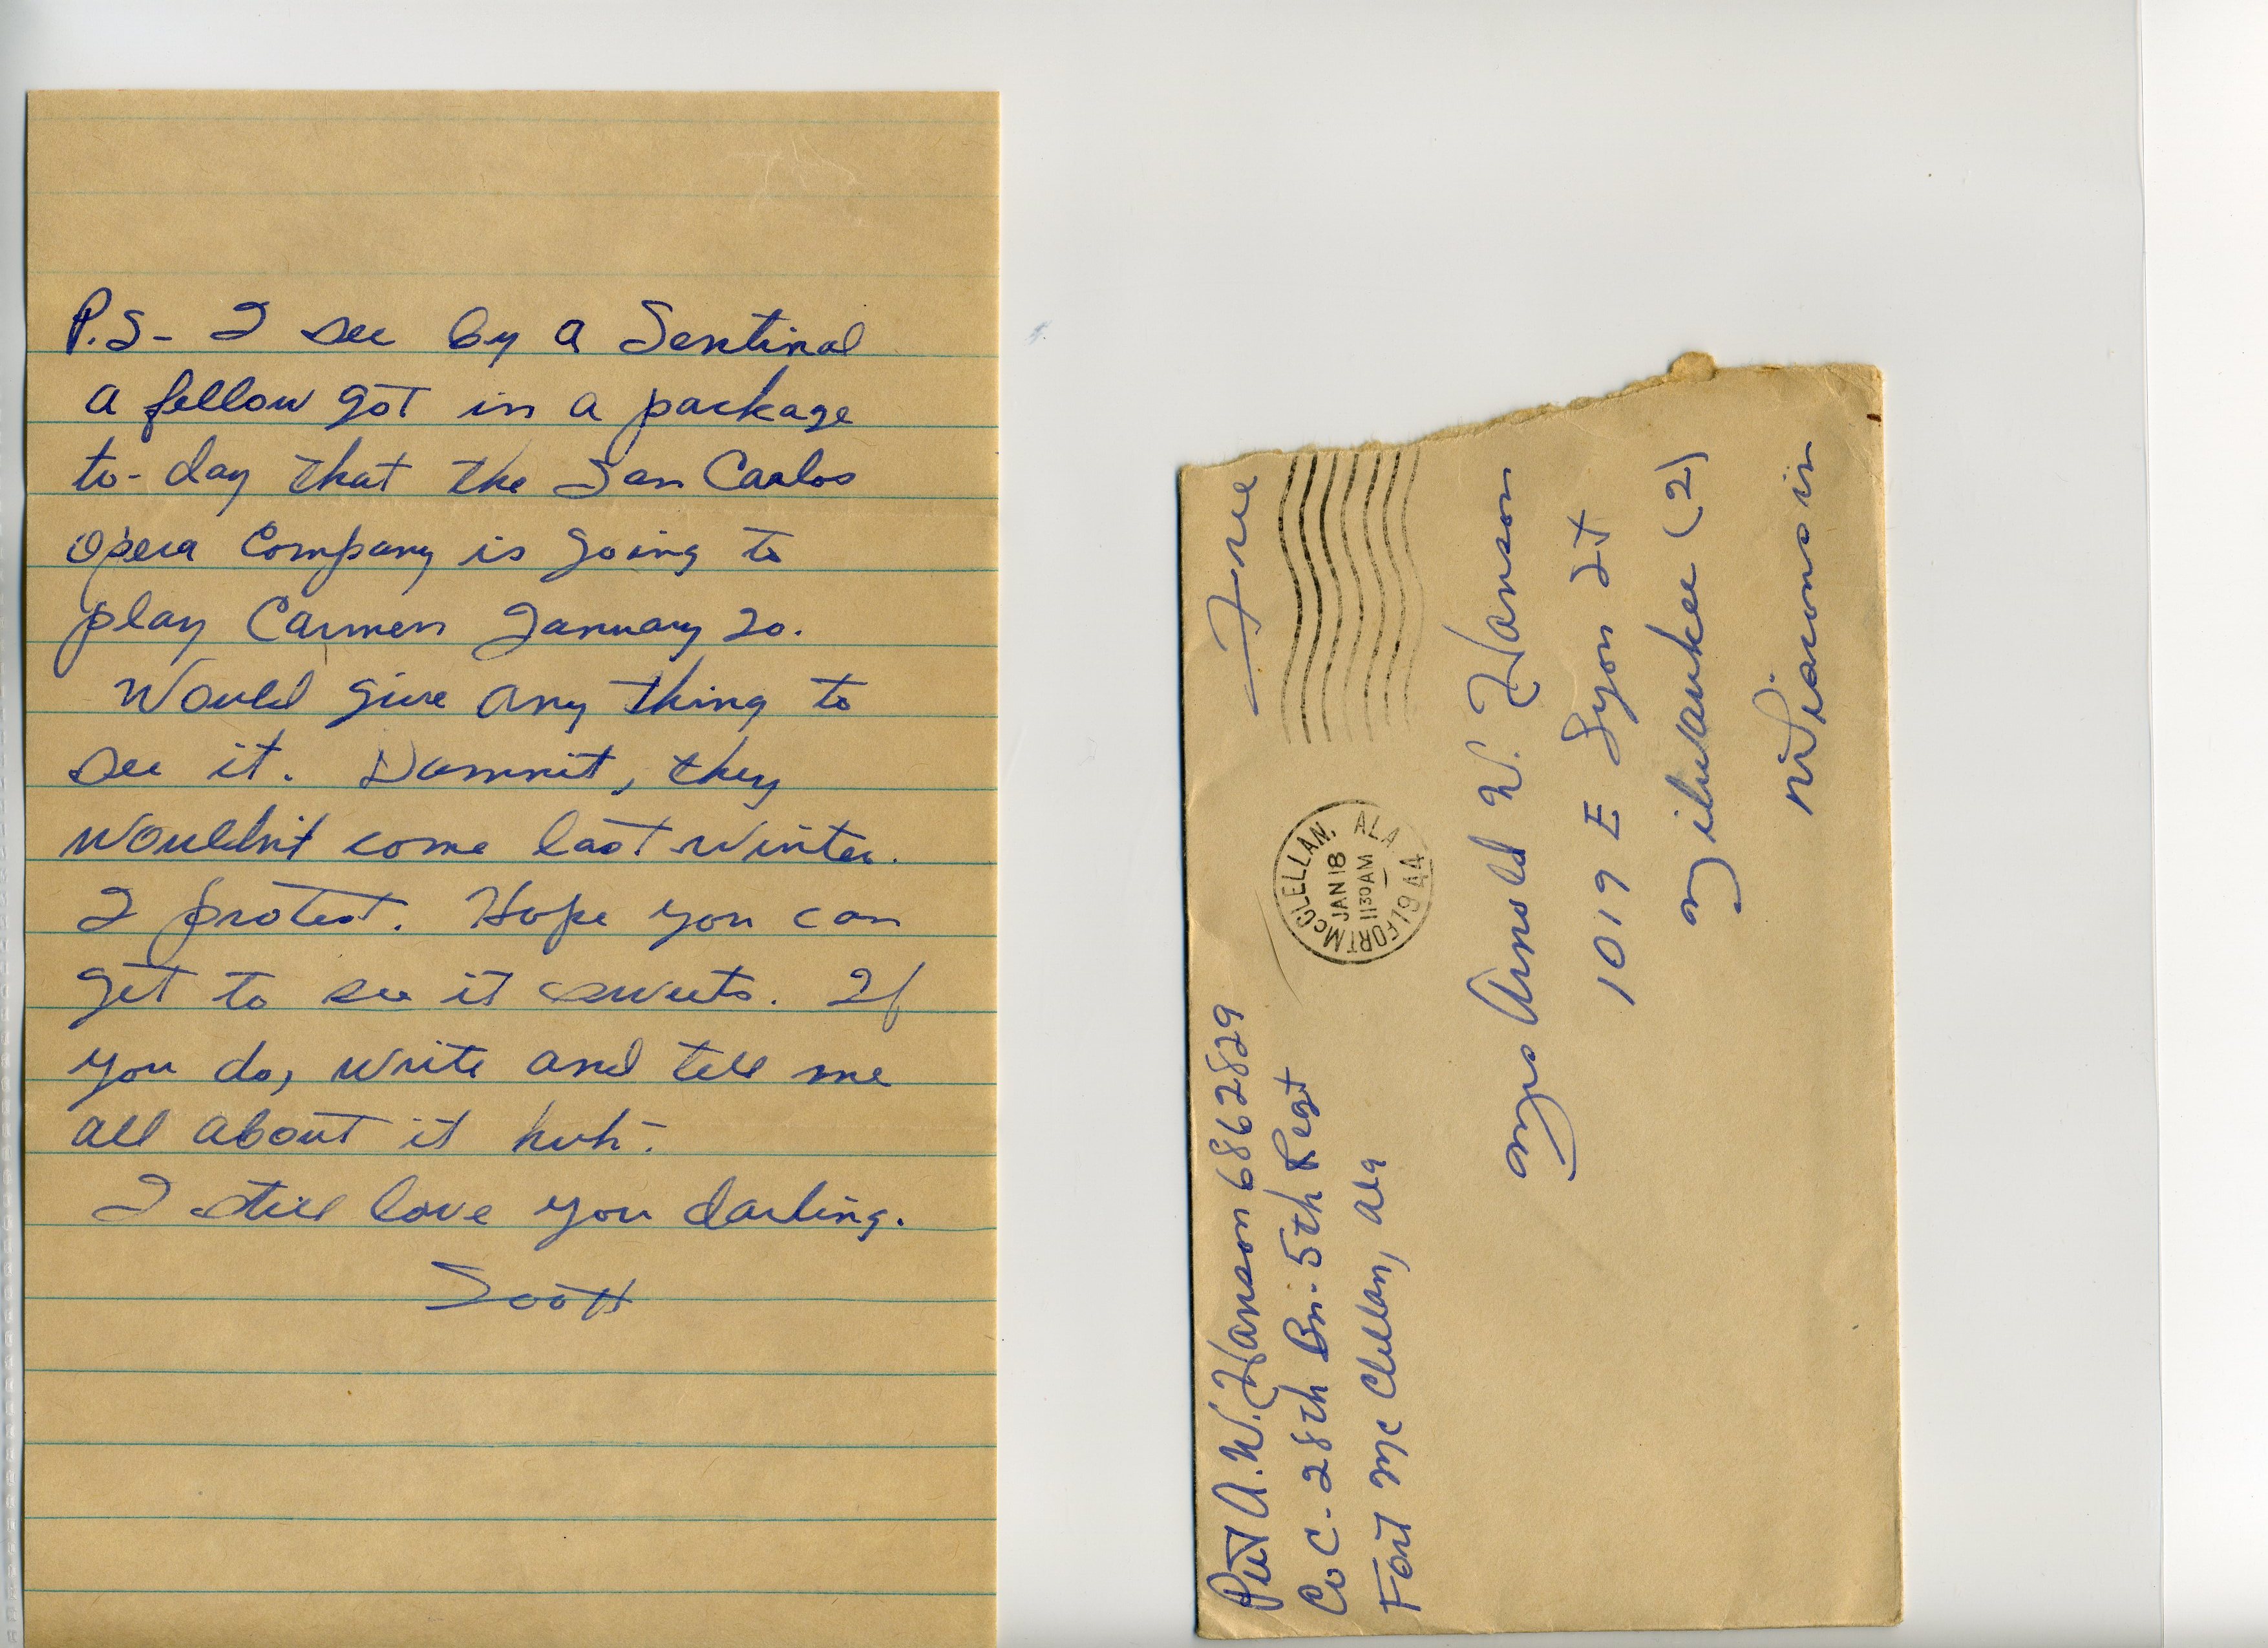 P.S- I see by a Sentinal
a fellow got in a package
to-day that the San Carlos
Opera Company is going to
play Carmen January 20.
Would give any thing to
see it. Damnit, they
wouldn't come last winter.
I protest. Hope you can
get to see it sweets. If
you do, write and tell me
all about it huh-
I still love you darling.
Scott
Pvt A.W. Hanson 6862829
Co C - 28th Bn. 5th Regt
Fort McClellan, Ala
Free
FORT McCLELLAN, ALA
JAN 18
1130 AM
1944
Mrs Arnold W. Hanson
1019 E Lyon St
Milwaukee (2)
Wisconsin